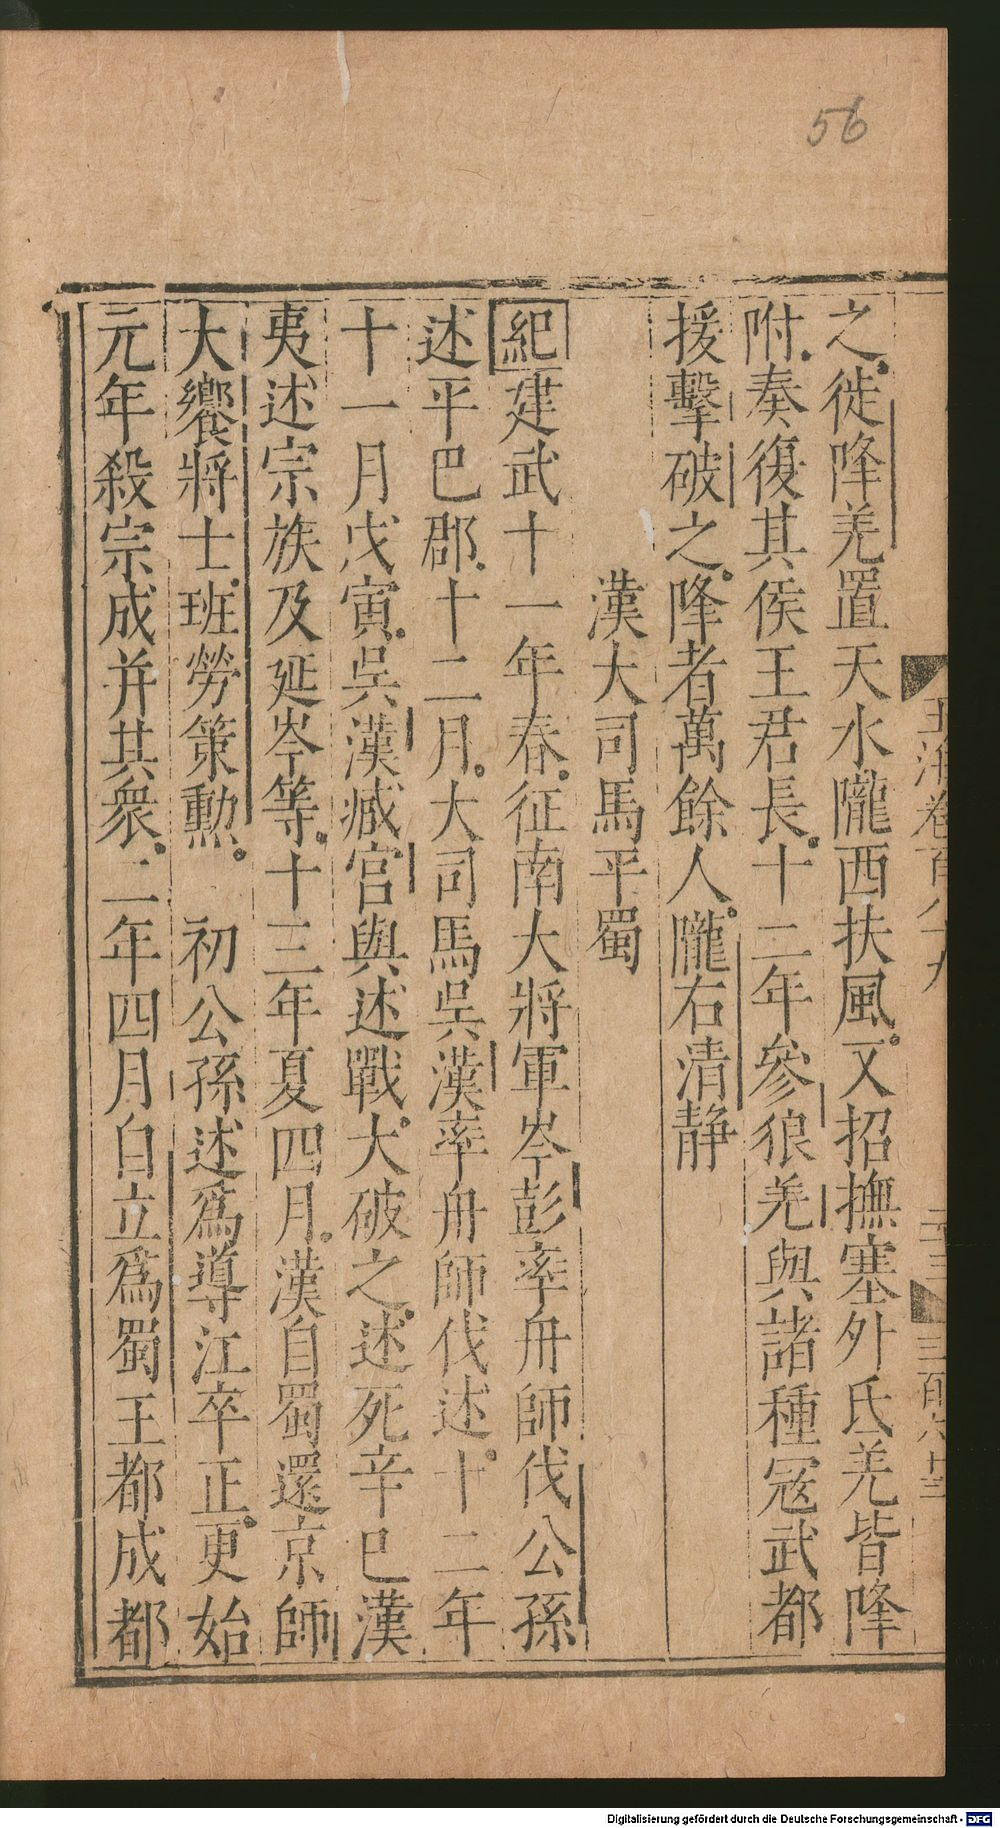 56
之徙降羌置天水隴西扶風又招撫塞外氐羌皆降
附奏復其侯王君長十二年參狼羌與諸種寇武都
援擊破之降者萬餘人隴右清静
漢大司馬平蜀
紀建武十一年春征南大將軍岑彭率舟師伐公孫
述平巴郡十二月大司馬吳漢率舟師伐述十二年
十一月戊寅吳漢臧宫與述戰大破之述死辛巳漢
夷述宗族及延岑等十三年夏四月漢自蜀還京師
大饗將士班勞策勲 初公孫述爲導江卒正更始
元年殺宗成并其衆二年四月自立爲蜀王都成都
玉海卷百八十九
三百六十三
Digitalisierung gefördert durch die Deutsche Forschungsgemeinschaft - DFG